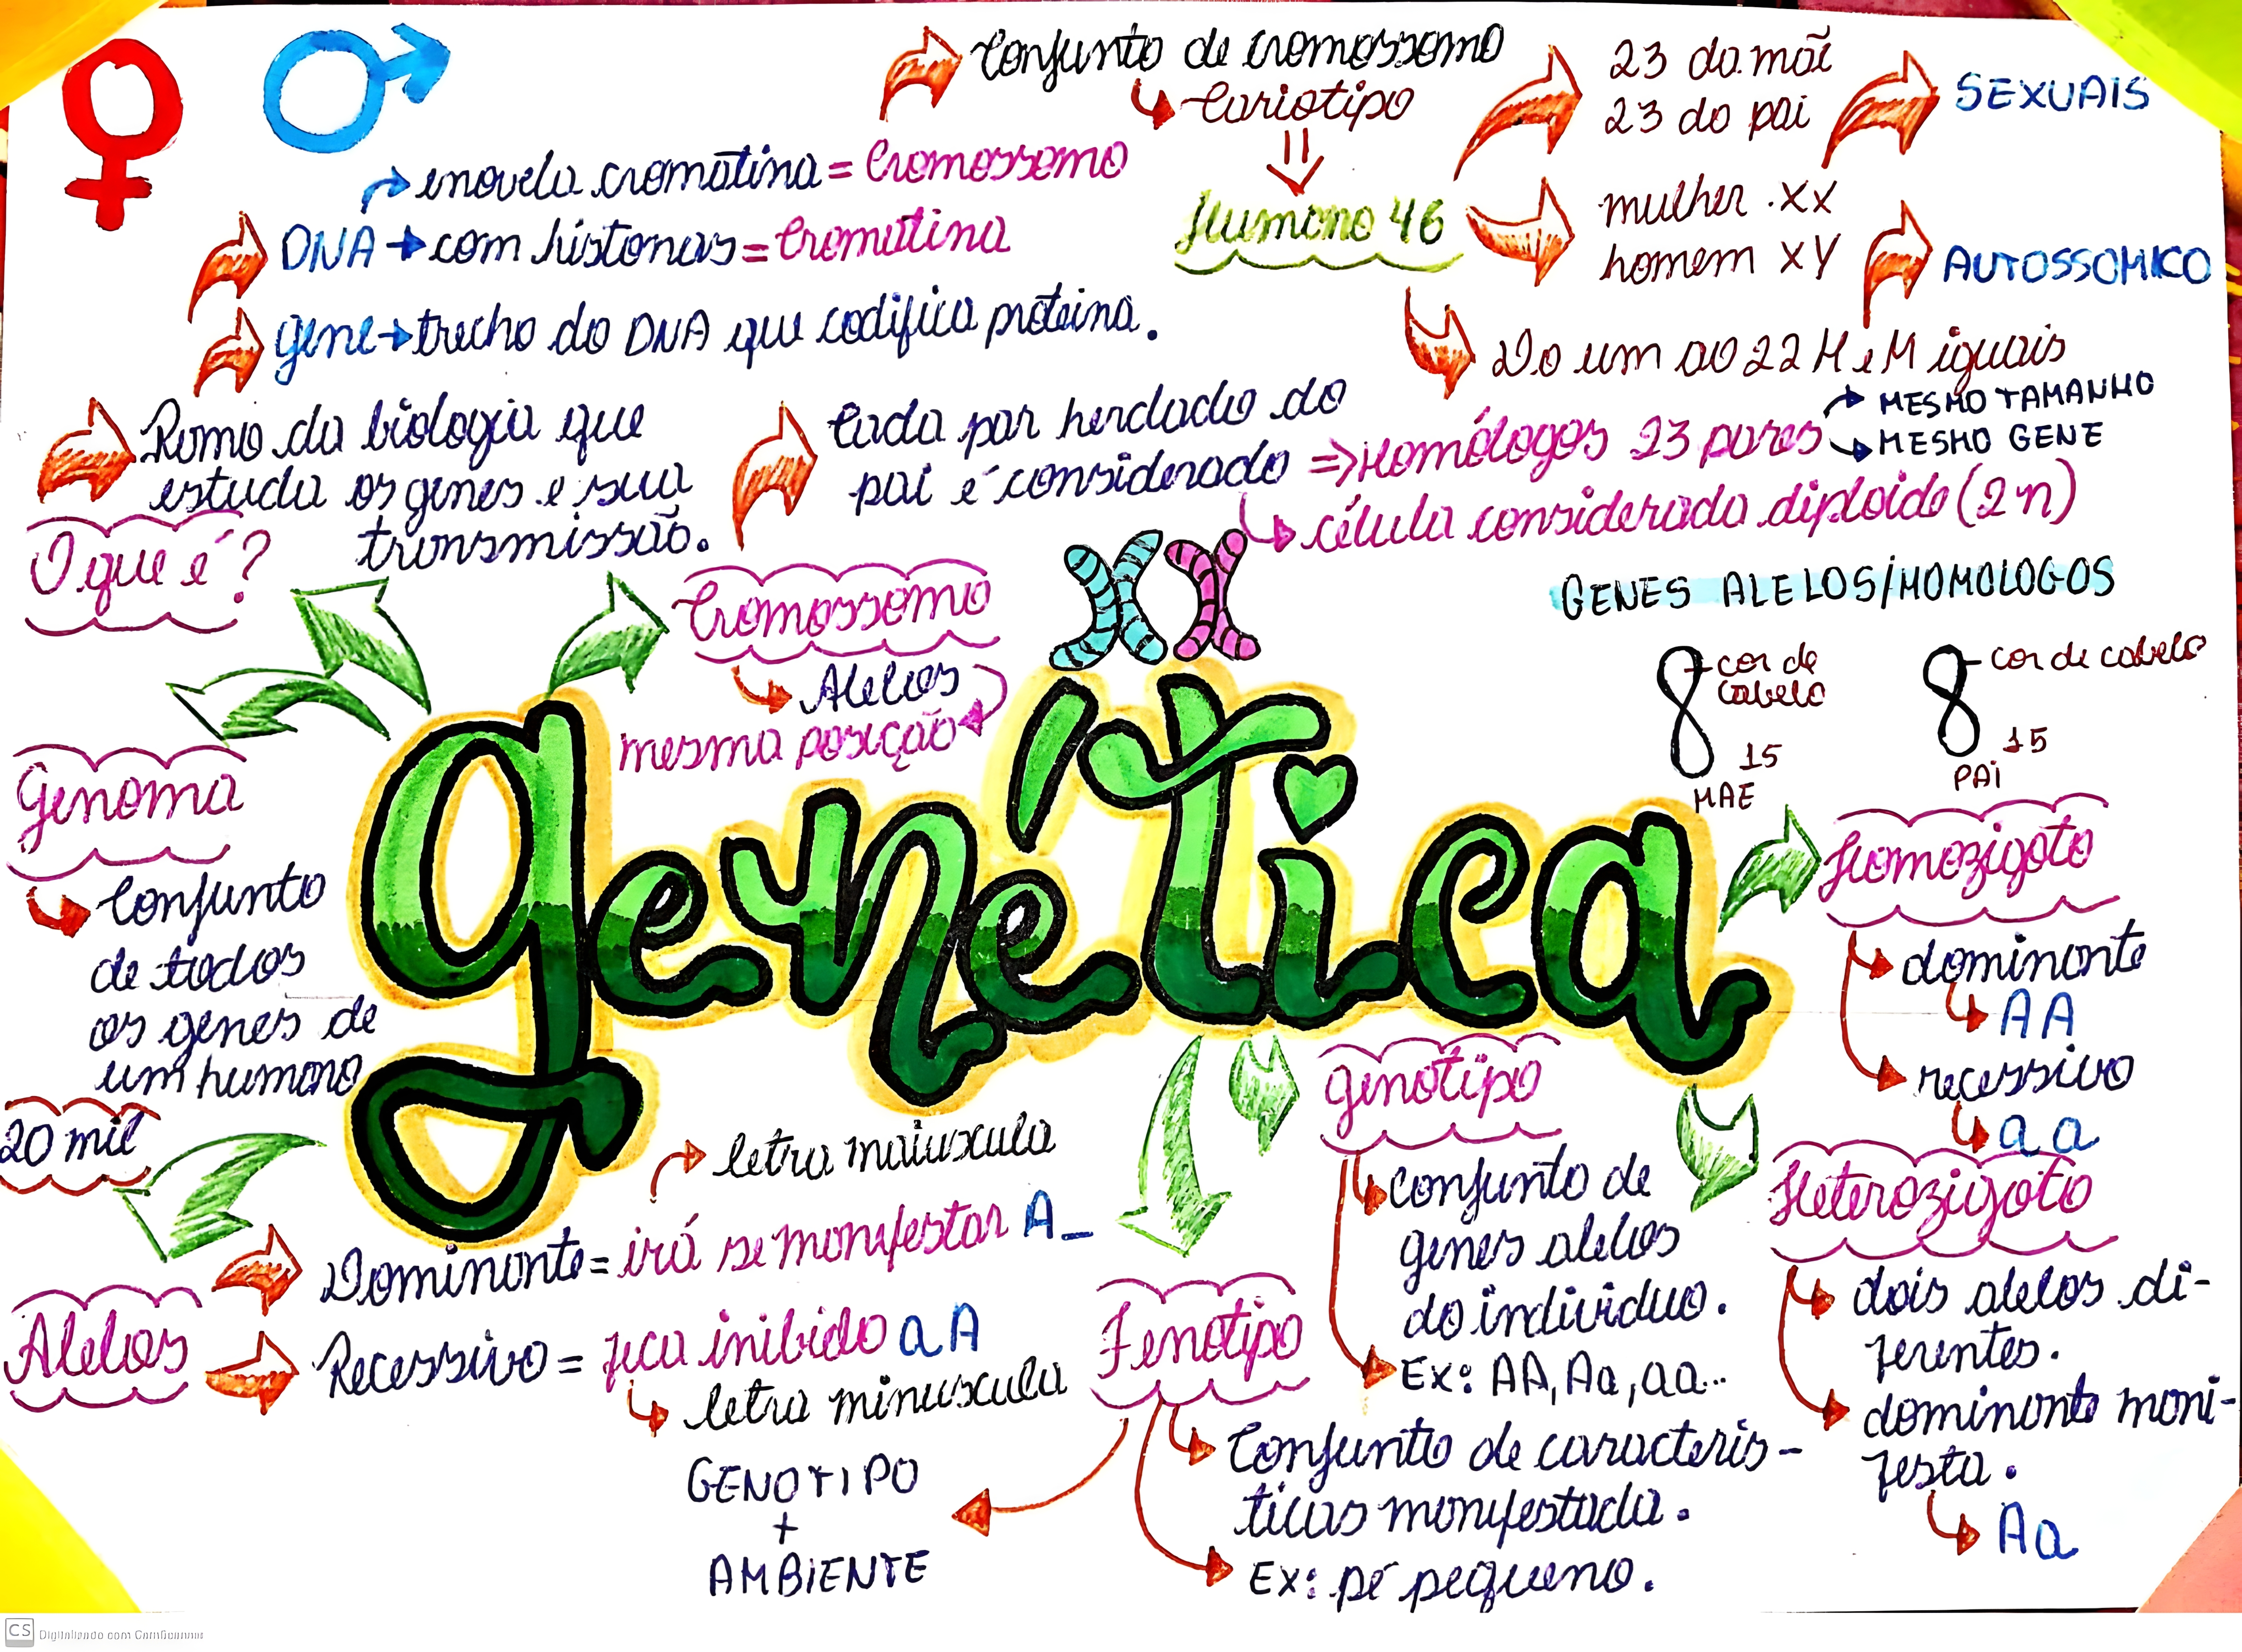 Conjunto de cromossomo
Cariotipo
Humano 46
23 da mãe
23 do pai
SEXUAIS
mulher XX
homem XY
AUTOSSOMICO
Do um ao 22 H e M iguais
enovela cromatina = Cromossomo
DNA → com histonas = Cromatina
gene → trecho do DNA que codifica proteina.
Ramo da biologia que
estuda os genes e sua
transmissão.
O que é?
Cada par herdado do
pai é considerado ⇒ Homólogos 23 pares
MESMO TAMANHO
MESMO GENE
célula considerada diploide (2n)
Cromossomo
Alelos
mesma posição
GENES ALELOS/HOMOLOGOS
cor de
cabelo
15
MAE
cor de cabelo
15
PAI
Genoma
Conjunto
de todos
os genes de
um humano
20 mil
genética
Homozigoto
dominante
AA
recessivo
aa
Heterozigoto
dois alelos di-
ferentes.
dominante mani-
festa.
Aa
genotipo
conjunto de
genes alelos
do individuo.
Ex: AA, Aa, aa...
Alelos
letra maiuscula
Dominante = irá se manifestar A_
Recessivo = fica inibido aA
letra minuscula
Fenotipo
Conjunto de caracteris-
ticas manifestada.
Ex: pé pequeno.
GENOTIPO
+
AMBIENTE
CS Digitalizado com CamScanner